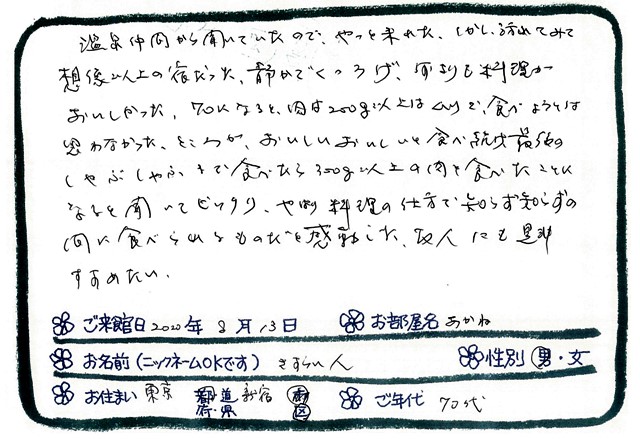 温泉仲間から聞いていたので、やっと来れた、しかし訪れてみて
想像以上の宿だった、静かでくつろげ、何よりも料理が
おいしかった、70になると、肉は200g以上は ムリで、食べようとは
思わなかった、ところが、おいしいおいしいと食べ続け最後の
しゃぶしゃぶまで食べたら300g以上の肉を食べたことに
なると聞いてビックリ、やはり料理の仕方で知らず知らずの
間に食べられるものだと感動した、友人にも是非
すすめたい、
ご来館日 2020年 8月13日 お部屋名 あかね
お名前(ニックネームOKです) きすらい人 性別 男・女
お住まい 東京 都道府・県 新宿 市区 ご年代 70代